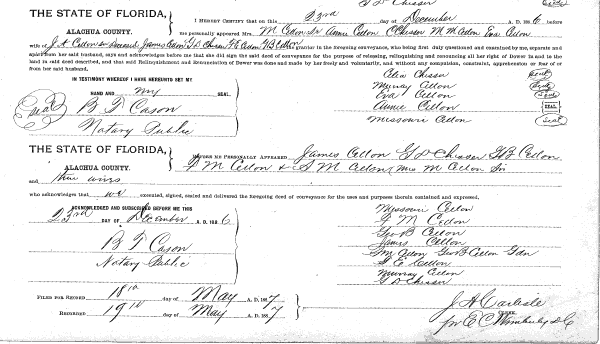 THE STATE OF FLORIDA,
ALACHUA COUNTY.
I HEREBY CERTIFY that on this 23rd day of December A. D. 1886, before
me personally appeared Mrs. M Cellon Sr Annie Cellon C Chesser M M Cellon Eva Cellon
wife of
grantor in the foregoing conveyance, who being first duly questioned and examined by me, separate and
apart from her said husband, says and acknowledges before me that she did sign the said deed of conveyance for the purpose of releasing, relinquishing and renouncing all her right of Dower in and to the
land in said deed described, and that said Relinquishment and Renunciation of Dower was done and made by her freely and voluntarily, and without any compulsion, constraint, apprehension or fear of or
from her said husband.
IN TESTIMONY WHEREOF I HAVE HEREUNTO SET MY
HAND AND my SEAL.
Seal
B T Cason
Notary Public
Chesser Seal
Murray Cellon Seal
Eva Cellon Seal
Annie Cellon SEAL
Missouri Cellon Seal
THE STATE OF FLORIDA,
ALACHUA COUNTY.
BEFORE ME PERSONALLY APPEARED James Cellon G D Chesser G B Cellon
F M Cellon & S M Cellon, Mrs M Cellon Sr
and their wives
who acknowledges that we executed, signed, sealed and delivered the foregoing deed of conveyance for the uses and purposes herein contained and expressed.
ACKNOWLEDGED AND SUBSCRIBED BEFORE ME THIS
23rd DAY OF December A. D. 1886
B T Cason
Notary Public
Missouri Cellon
F M Cellon
Geo B Cellon
James Cellon
Geo B Cellon Gdn
Cellon
Murray Cellon
G D Chesser
FILED FOR RECORD 18th day of May A. D. 1887
RECORDED 19th day of May A. D. 1887
J A Carlisle
CLERK.
per E C Wimberly D C